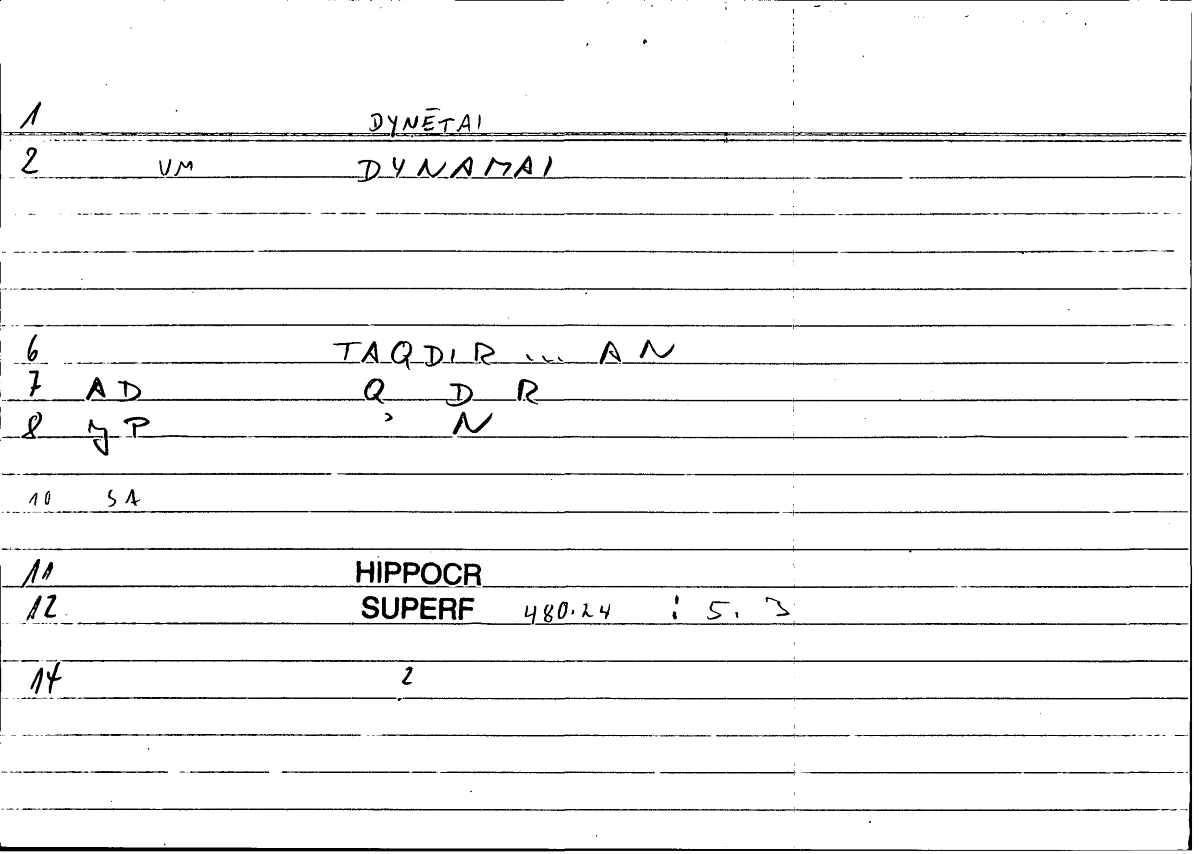 1 DYNĒTAI
2 VM DYNAMAI
6 TAQDIR ... AN
7 AD Q D R
8 yP ʾ N
10 SA
11 HIPPOCR
12 SUPERF 480.24 : 5. 3
14 2